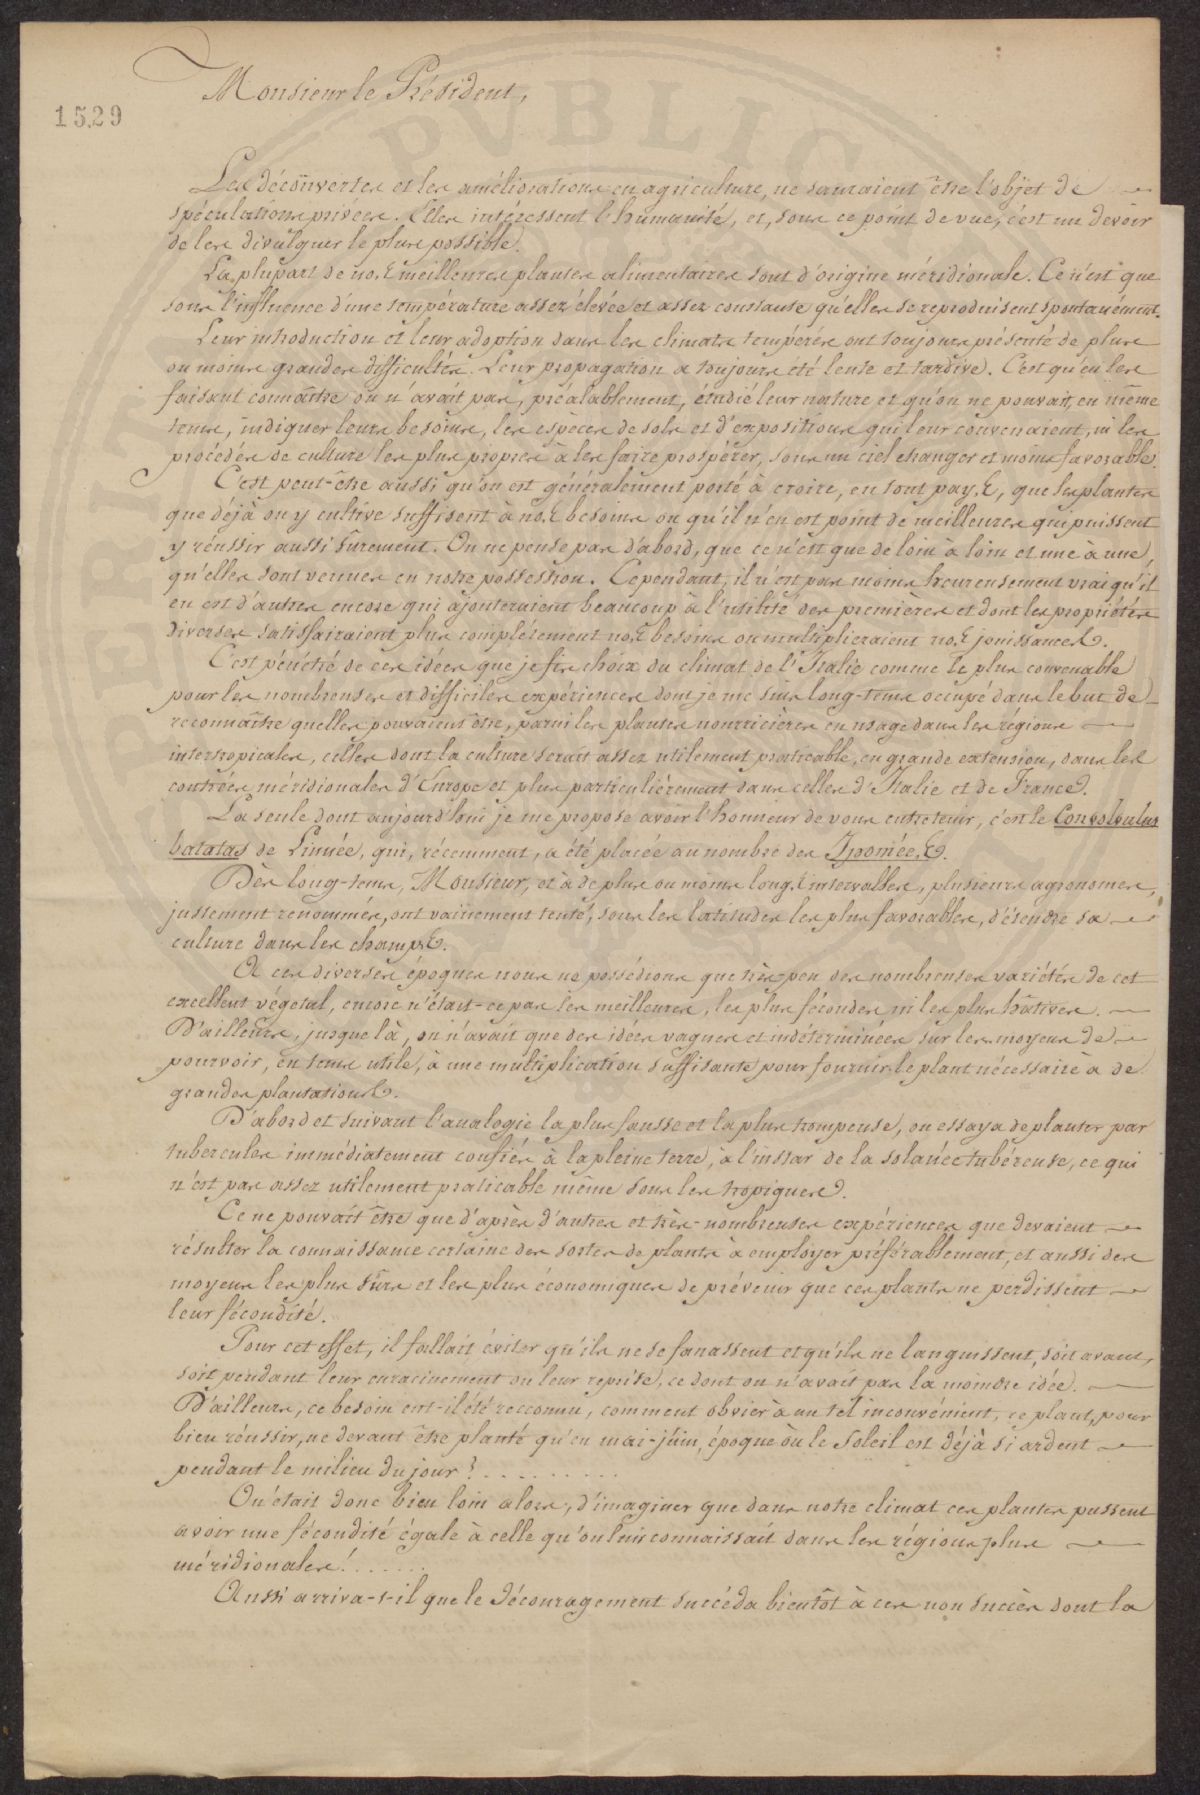 Monsieur le Président,
1529
Les découvertes et les améliorations en agriculture, ne sauraient être l'objet de
spéculations privées. Elles intéressent l'humanité, et, sous ce point de vue, c'est un devoir
de les divulguer le plus possible.
La plupart de nos meilleures plantes alimentaires sont d'origine méridionale. Ce n'est que
sous l'influence d'une température assez élevée et assez constante qu'elles se reproduisent spontanément.
Leur introduction et leur adoption dans les climats tempérés ont toujours présenté de plus
ou moins grandes difficultés. Leur propagation a toujours été lente et tardive. C'est qu'en les
faisant connaître on n'avait pas, préalablement, étudié leur nature et qu'on ne pouvait, en même
tems, indiquer leurs besoins, les espèces de sols et d'expositions qui leur convenaient, ni les
procédés de culture les plus propres à les faire prospérer, sous un ciel étranger et moins favorable.
C'est peut-être aussi qu'on est généralement porté à croire, en tout pays, que les plantes
que déjà on y cultive suffisent à nos besoins ou qu'il n'en est point de meilleures qui puissent
y réussir aussi sûrement. On ne pense pas d'abord, que ce n'est que de loin à loin et une à une,
qu'elles sont venues en notre possession. Cependant, il n'est pas moins heureusement vrai qu'il
en est d'autres encore qui ajouteraient beaucoup à l'utilité des premières et dont les propriétés
diverses satisfairaient plus complétement nos besoins ou multiplieraient nos jouissances.
C'est pénétré de ces idées que je fis choix du climat de l'Italie comme le plus convenable
pour les nombreuses et difficiles expériences dont je me suis long-tems occupé dans le but de
reconnaître quelles pouvaient être, parmi les plantes nourricières en usage dans les régions
intertropicales, celles dont la culture serait assez utilement praticable, en grande extension, dans les
contrées méridionales d'Europe et plus particulièrement dans celles d'Italie et de France.
La seule dont aujourd'hui je me propose avoir l'honneur de vous entretenir, c'est le Convolvulus
batatas de Linnée, qui, récemment, a été placée au nombre des Ipomées.
Dès long-tems, Monsieur, et à de plus ou moins longs intervalles, plusieurs agronomes,
justement renommés, ont vainement tenté, sous les latitudes les plus favorables, d'étendre sa
culture dans les champs.
A ces diverses époques nous ne possédions que très-peu des nombreuses variétés de cet
excellent végetal, encore n'était-ce pas les meilleures, les plus fécondes ni les plus hâtives.
D'ailleurs, jusque là, on n'avait que des idées vagues et indéterminées sur les moyens de
pourvoir, en tems utile, à une multiplication suffisante pour fournir le plant nécessaire à de
grandes plantations.
D'abord et suivant l'analogie la plus fausse et la plus trompeuse, on essaya de planter par
tubercules immédiatement confiés à la pleine terre, à l'instar de la solanée tubéreuse, ce qui
n'est pas assez utilement praticable même sous les tropiques.
Ce ne pouvait être que d'après d'autres et très-nombreuses expériences que devaient
résulter la connaissance certaine des sortes de plants à employer préférablement, et aussi des
moyens les plus sûrs et les plus économiques de prévenir que ces plants ne perdissent
leur fécondité.
Pour cet effet, il fallait éviter qu'ils ne se fanassent et qu'ils ne languissent, soit avant,
soit pendant leur enracinement ou leur reprise, ce dont on n'avait pas la moindre idée.
D'ailleurs, ce besoin eut-il été reconnu, comment obvier à un tel inconvénient, ce plant, pour
bien réussir, ne devant être planté qu'en mai-juin, époque où le Soleil est déjà si ardent
pendant le milieu du jour ? . . . . . . . . .
On était donc bien loin alors, d'imaginer que dans notre climat ces plantes pussent
avoir une fécondité égale à celle qu'on leur connaissait dans les régions plus
méridionales ! . . . . . .
Aussi arriva-t-il que le découragement succéda bientôt à ces non succès dont la